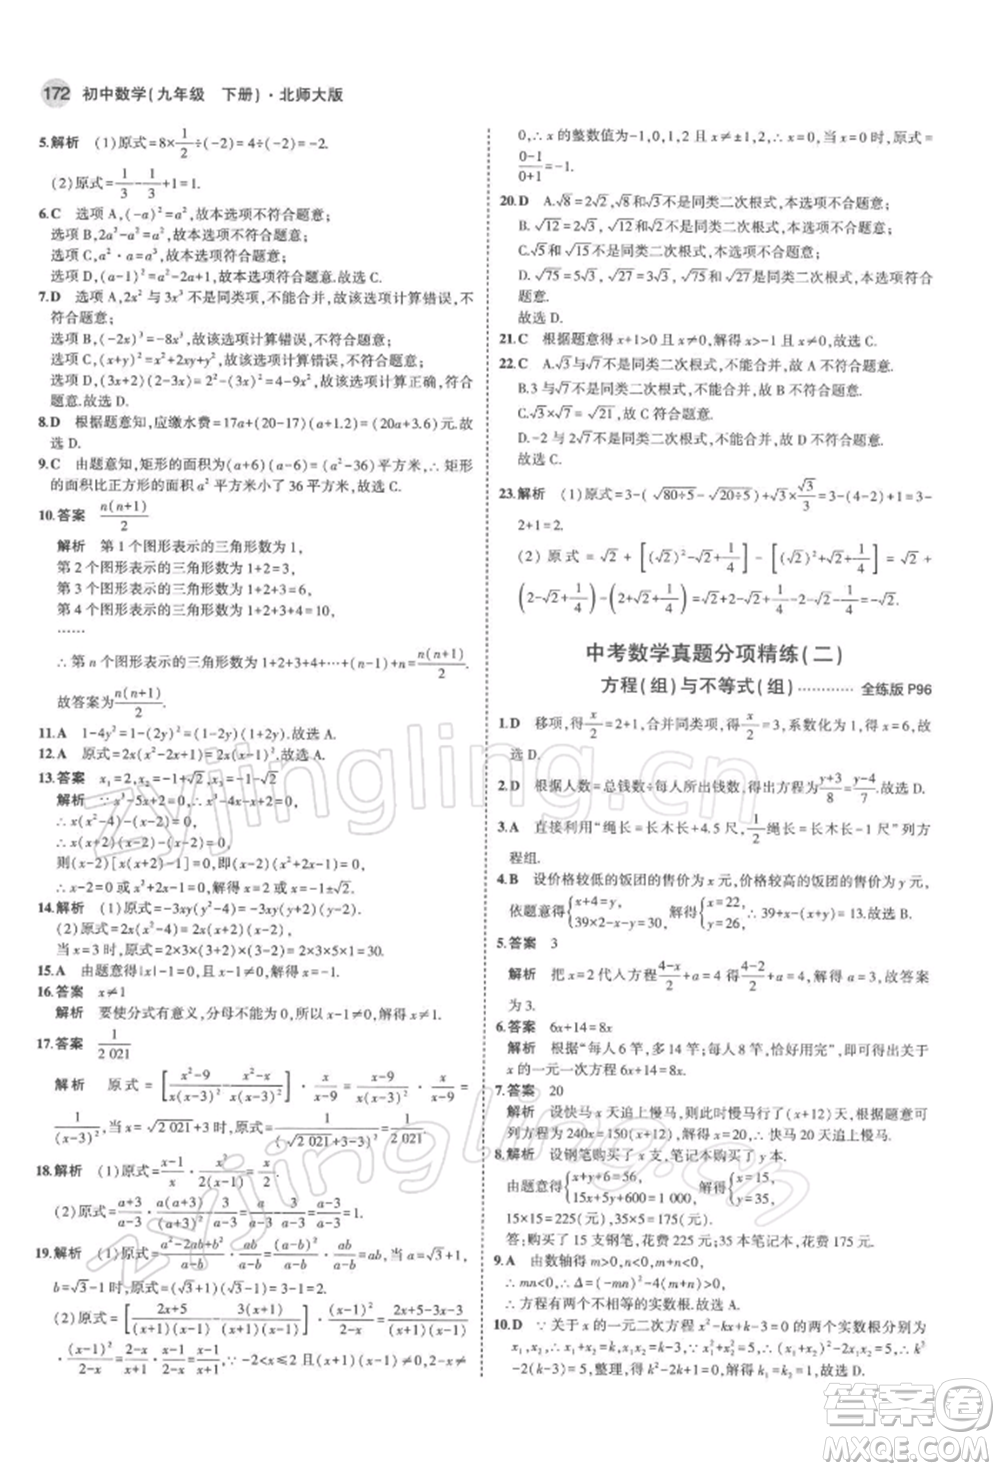 172 初中数学(九年级 下册)·北师大版
5.解析 (1)原式=8×1/2÷(-2)=4÷(-2)=-2.
(2)原式=1/3-1/3+1=1.
6.C 选项A,(-a)²=a²,故本选项不符合题意;
选项B,2a²-a²=a²,故本选项不符合题意;
选项C,a²·a=a³,故本选项符合题意;
选项D,(a-1)²=a²-2a+1,故本选项不符合题意.故选C.
7.D 选项A,2x²与3x³不是同类项,不能合并,故该选项计算错误,不
符合题意;
选项B,(-2x)³=-8x³,故该选项计算错误,不符合题意;
选项C,(x+y)²=x²+2xy+y²,故该选项计算错误,不符合题意;
选项D,(3x+2)(2-3x)=2²-(3x)²=4-9x²,故该选项计算正确,符合
题意.故选D.
8.D 根据题意知,应缴水费=17a+(20-17)(a+1.2)=(20a+3.6)元.故
选D.
9.C 由题意知,矩形的面积为(a+6)(a-6)=(a²-36)平方米,∴矩形
的面积比正方形的面积a²平方米小了36平方米,故选C.
10.答案 n(n+1)/2
解析 第1个图形表示的三角形数为1,
第2个图形表示的三角形数为1+2=3,
第3个图形表示的三角形数为1+2+3=6,
第4个图形表示的三角形数为1+2+3+4=10,
……
∴第n个图形表示的三角形数为1+2+3+4+…+(n-1)+n=n(n+1)/2.
故答案为n(n+1)/2.
11.A 1-4y²=1-(2y)²=(1-2y)(1+2y).故选A.
12.A 原式=2x(x²-2x+1)=2x(x-1)².故选A.
13.答案 x₁=2,x₂=-1+√2,x₃=-1-√2
解析 ∵x³-5x+2=0,∴x³-4x-x+2=0,
∴x(x²-4)-(x-2)=0,
∴x(x+2)(x-2)-(x-2)=0,
则(x-2)[x(x+2)-1]=0,即(x-2)(x²+2x-1)=0,
∴x-2=0或x²+2x-1=0,解得x=2或x=-1±√2.
14.解析 (1)原式=-3xy(y²-4)=-3xy(y+2)(y-2).
(2)原式=2x(x²-4)=2x(x+2)(x-2),
当x=3时,原式=2×3×(3+2)×(3-2)=2×3×5×1=30.
15.A 由题意得|x|-1=0,且x-1≠0,解得x=-1,故选A.
16.答案 x≠1
解析 要使分式有意义,分母不能为0,所以x-1≠0,解得x≠1.
17.答案 1/2 021
解析 原式=[(x²-9)/(x(x-3)²)-(x²-x)/(x(x-3)²)]·x/(x-9)=(x-9)/(x(x-3)²)·x/(x-9)=
1/(x-3)²,当x=√2 021+3时,原式=1/(√2 021+3-3)²=1/2 021.
18.解析 (1)原式=(x-1)/x·x²/((x-1)(x+1))=x/(x+1).
(2)原式=(a+3)/(a-3)-a(a+3)/(a+3)²·(a+3)/(a-3)=(a+3)/(a-3)-a/(a-3)=3/(a-3).
19.解析 (1)原式=(a²-2ab+b²)/(a-b)·ab/(a-b)=(a-b)²/(a-b)·ab/(a-b)=ab,当a=√3+1,
b=√3-1时,原式=(√3+1)(√3-1)=2.
(2)原式=[(2x+5)/((x+1)(x-1))-3(x+1)/((x+1)(x-1))]·(x-1)²/(2-x)=(2x+5-3x-3)/((x+1)(x-1))
·(x-1)²/(2-x)=(2-x)/((x+1)(x-1))·(x-1)²/(2-x)=(x-1)/(x+1),∵-2<x≤2且(x+1)(x-1)(2-x)≠
0,∴x的整数值为-1,0,1,2且x≠±1,2,∴x=0,当x=0时,原式=
(0-1)/(0+1)=-1.
20.D A.√8=2√2,√8与√3不是同类二次根式,本选项不合题意;
B.√12=2√3,√12与√2不是同类二次根式,本选项不合题意;
C.√5与√15不是同类二次根式,本选项不合题意;
D.√75=5√3,√27=3√3,√75与√27是同类二次根式,本选项符合
题意.
故选D.
21.C 根据题意得x+1>0且x≠0,解得x>-1且x≠0.故选C.
22.C A.√3与√7不是同类二次根式,不能合并,故A不符合题意.
B.3与√7不能合并,故B不符合题意.
C.√3×√7=√21,故C符合题意.
D.-2与2√7不能合并,故D不符合题意.
故选C.
23.解析 (1)原式=3-(√80÷5-√20÷5)+√3×√3/3=3-(4-2)+1=3-
2+1=2.
(2)原式=√2+[(√2)²-√2+1/4]-[(√2)²+√2+1/4]=√2+
(2-√2+1/4)-(2+√2+1/4)=√2+2-√2+1/4-2-√2-1/4=-√2.
中考数学真题分项精练(二)
方程(组)与不等式(组)………… 全练版P96
1.D 移项,得x/2=2+1,合并同类项,得x/2=3,系数化为1,得x=6,故
选D.
2.D 根据人数=总钱数÷每人所出钱数,得出方程(y+3)/8=(y-4)/7.故选D.
3.A 直接利用“绳长=木长+4.5尺,1/2绳长=木长-1尺”列方
程组.
4.B 设价格较低的饭团的售价为x元,价格较高的饭团的售价为y元,
依题意得{x+4=y, 39×2-x=y,解得{x=37, y=41,∴39+x-(x+y)=-2.故选B.
5.答案 3
解析 把x=2代人方程(4-x)/2+a=4,得(4-2)/2+a=4,解得a=3,故答案
为3.
6.答案 6x+14=8x
解析 根据“每人6竿,多14竿;每人8竿,恰好用完”,可列出关于
x的一元一次方程为6x+14=8x.
7.答案 20
解析 设快马x天追上慢马,则此时慢马走了(x+12)天,根据题意可
列方程为240x=150(x+12),解得x=20,∴快马20天追上慢马.
8.解析 设钢笔购买了x支,笔记本购买了y本.
由题意得{x+y+6=56, 15x+5y+600=1 000,解得{x=15, y=35,
15×15=225(元),35×5=175(元).
答:购买了15支钢笔,花费225元;35本笔记本,花费175元.
9.A 由数轴得m>0,n<0,m+n<0,
∴mn<0,∴Δ=(-mn)²-4(m+n)>0,
∴方程有两个不相等的实数根.故选A.
10.D ∵关于x的一元二次方程x²-kx+k-3=0的两个实数根分别为
x₁,x₂,∴x₁+x₂=k,x₁x₂=k-3,∵x₁²+x₂²=5,∴(x₁+x₂)²-2x₁x₂=5,
∴k²-2(k-3)=5,整理,得k²-2k+1=0,解得k₁=k₂=1.故选D.
zyjingling.cn
zyjingling.cn
答案圈
MXQE.COM